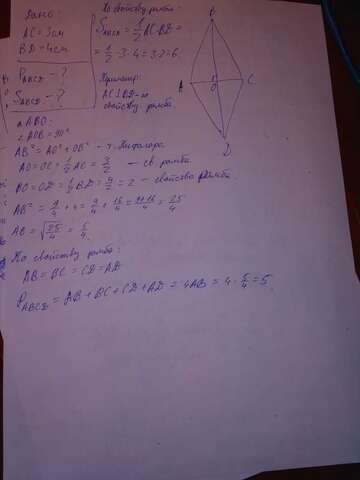 Дано:
AC = 3см
BD = 4см
P ABCD - ?
S ABCD - ?
По свойству ромба:
S ABCD = 1/2 AC·BD =
= 1/2 · 3 · 4 = 3·2 = 6.
Периметр:
AC⊥BD - по
свойству ромба
B
A
O
C
D
△ABO:
∠AOB = 90°
AB² = AO² + OB² - т. Пифагора
AO = OC = 1/2 AC = 3/2 - св. ромба
BO = OD = 1/2 BD = 4/2 = 2 - свойство ромба
AB² = 9/4 + 4 = 9/4 + 16/4 = 9+16/4 = 25/4
AB = √25/4 = 5/4.
По свойству ромба:
AB = BC = CD = AD
P ABCD = AB + BC + CD + AD = 4AB = 4 · 5/4 = 5.